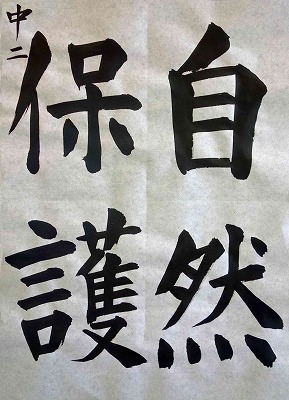 自然
保護
中二